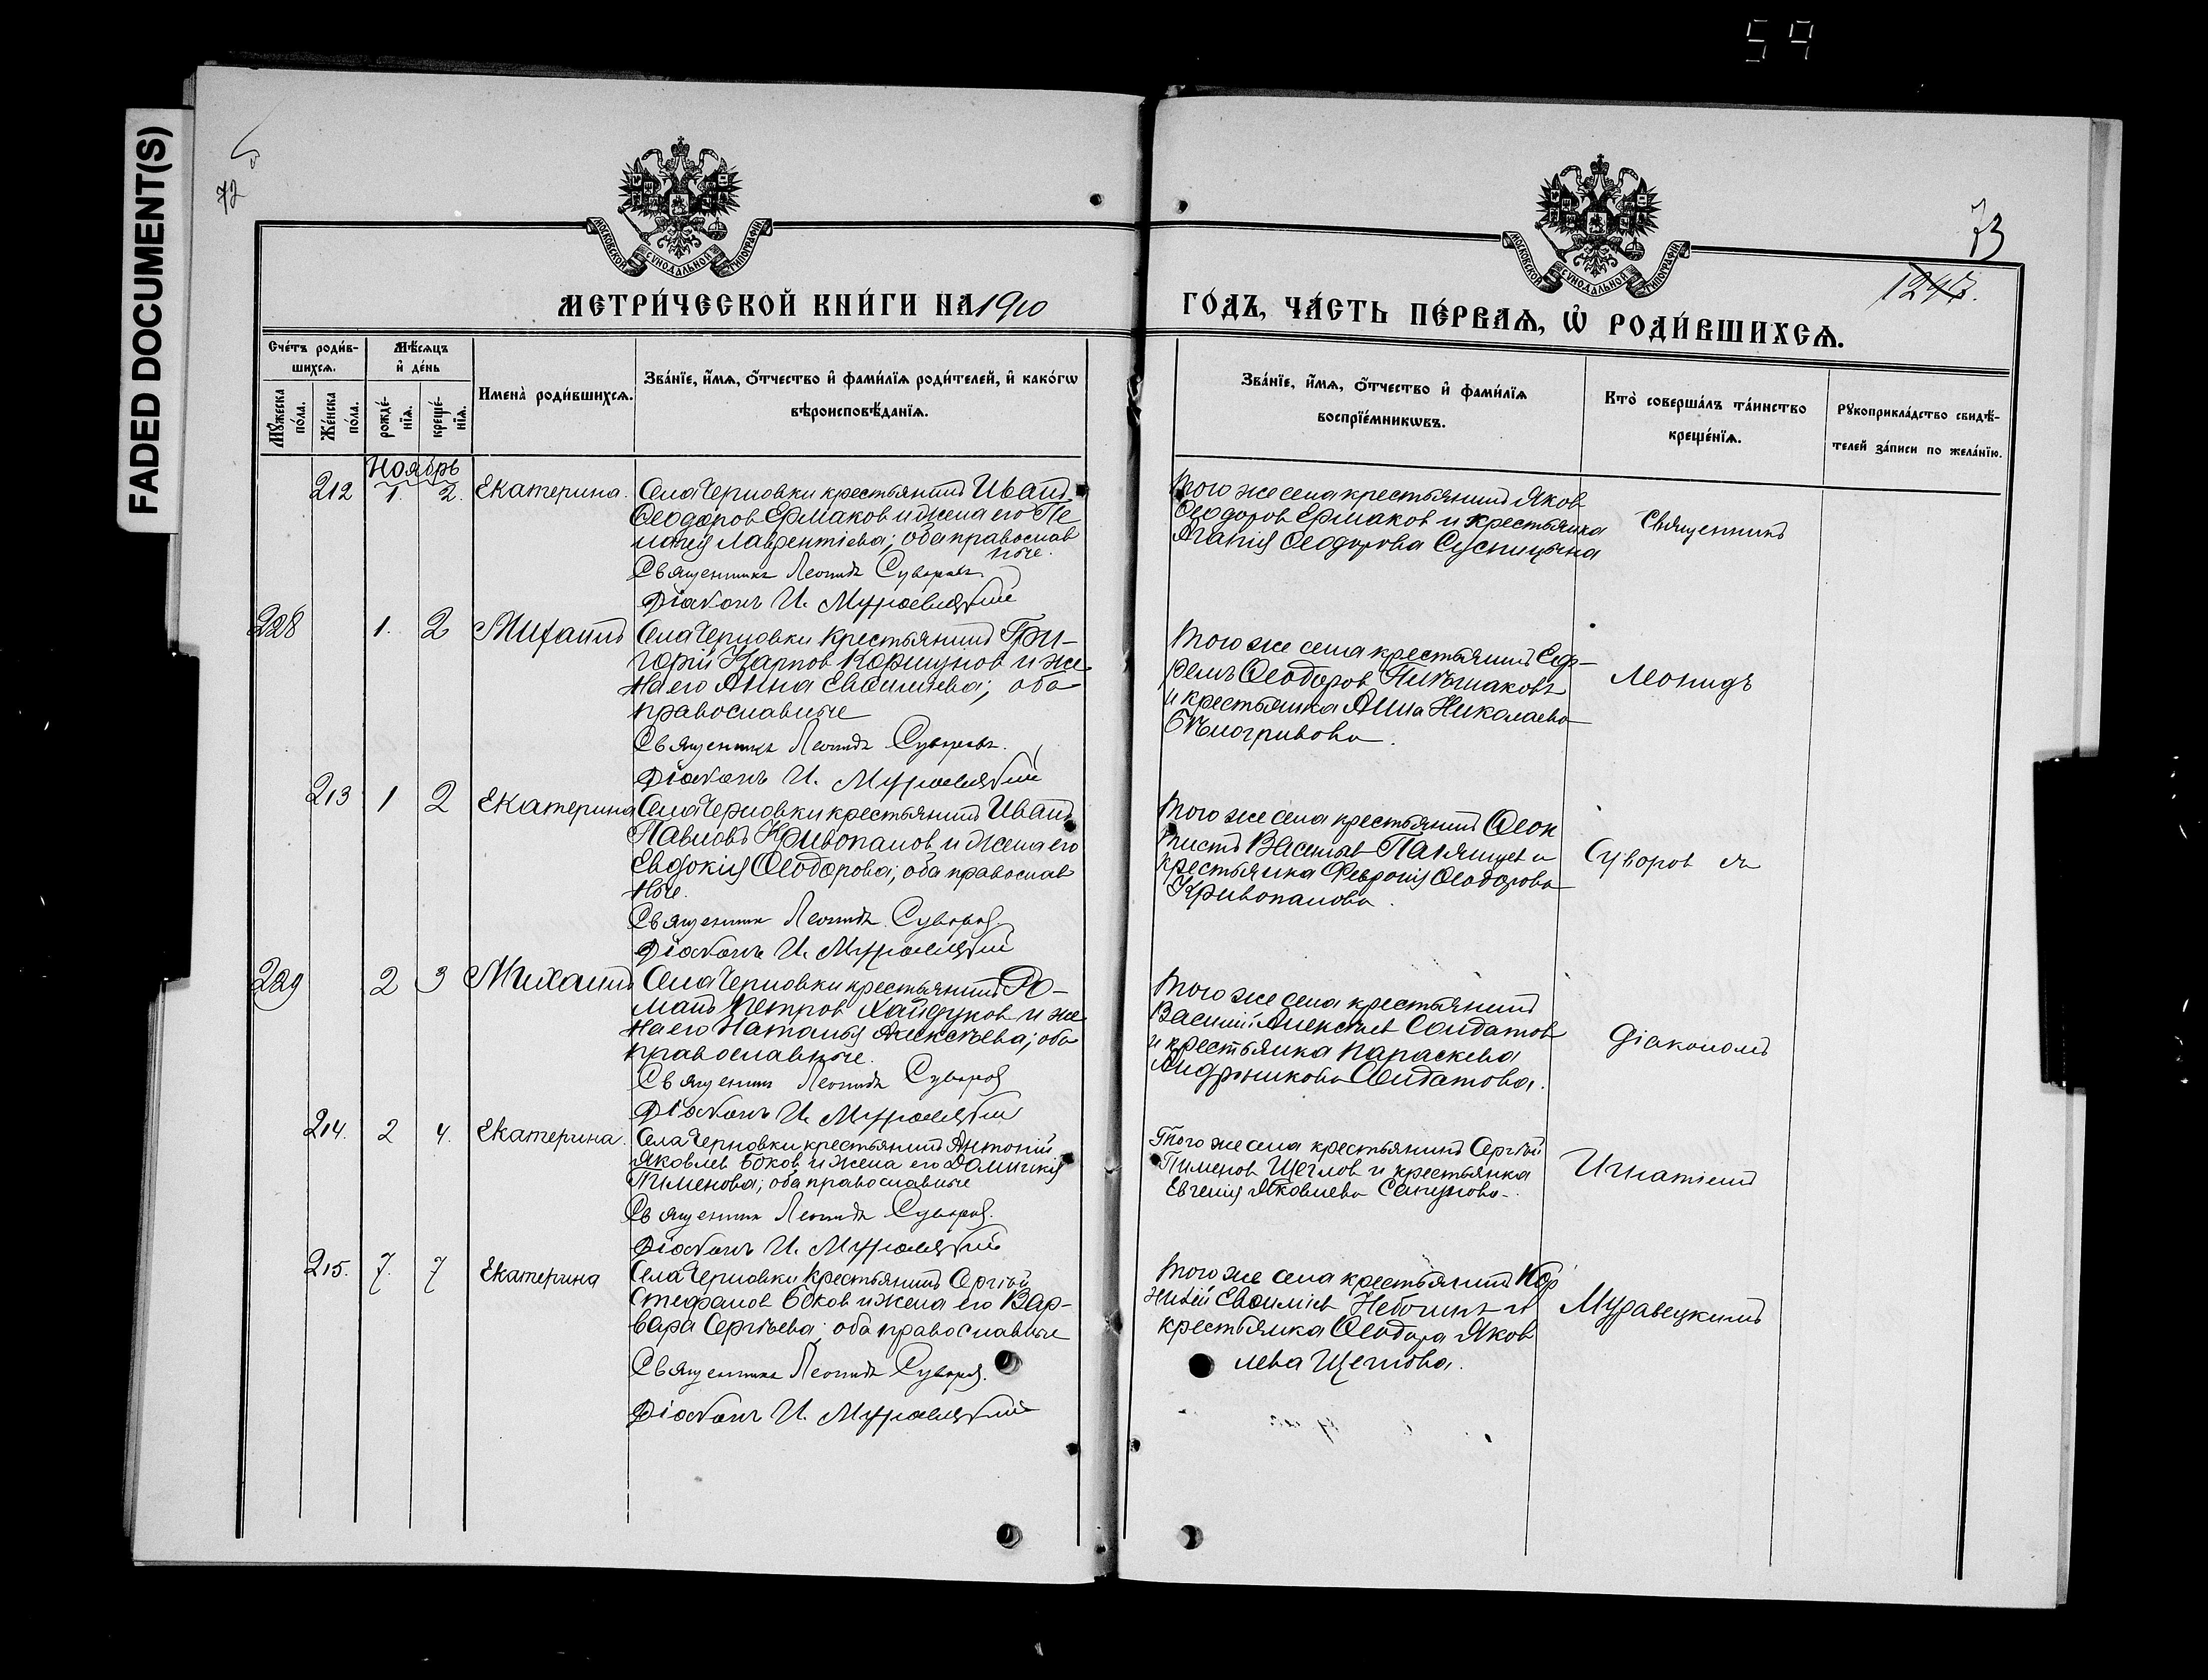 59
FADED DOCUMENT(S)
72
МОСКОВСКОЙ СѴНОДАЛЬНОЙ ТИПОГРАФІИ
МЕТРИ́ЧЕСКОЙ КНИ́ГИ НА 1910
Сче́тъ роди́в-
шихсѧ.
Мѣ́сѧцъ
и҆ де́нь
Мꙋ́жеска
по́ла.
Же́нска
по́ла.
рожде́-
нїѧ.
креще́-
нїѧ.
Имена̀ роди́вшихсѧ.
Зва́нїе, и҆́мѧ, ѻ҆́тчество и҆ фами́лїѧ роди́телей, и҆ како́гѡ
вѣроисповѣ́данїѧ.
Ноябрь
212 1. 2. Екатерина. Села Черновки крестьянинъ Иванъ
Ѳеодоров Ермаков и жена его Пе
лагея Лаврентіева; оба православ
ные.
Священникъ Леонидъ Суворовъ
Діаконъ И. Муравецкій
228 1. 2 Михаилъ Села Черновки крестьянинъ Гри-
горій Карпов Коршунов и же
на его Анна Евѳиміева; оба
православные
Священникъ Леонидъ Суворовъ.
Діаконъ И. Муравецкій
213 1 2 Екатерина Села Черновки крестьянинъ Иванъ
Павловъ Кривопалов и жена его
Евдокія Ѳеодорова; оба православ
ные.
Священник Леонидъ Суворов.
Діаконъ И. Муравецкій
229 2 3 Михаилъ Села Черновки крестьянинъ Ро-
манъ Петров Хайдуков и же
на его Наталья Алексѣева; оба
православные.
Священник Леонидъ Суворов
Діаконъ И. Муравецкій
214. 2 4. Екатерина. Села Черновки крестьянинъ Антоній
Яковлев Боков и жена его Домникія
Пименова; оба православные
Священник Леонидъ Суворов.
Діаконъ И. Муравецкій
215. 7. 7 Екатерина Села Черновки крестьянинъ Сергій
Стефанов Боков и жена его Вар-
вара Сергѣева; оба православные
Священникъ Леонидъ Суворов.
Діаконъ И. Муравецкій
73
1247.
МОСКОВСКОЙ СѴНОДАЛЬНОЙ ТИПОГРАФІИ
ГО́ДЪ, ЧА́СТЬ ПЕ́РВАѦ, Ѡ҆ РОДИ́ВШИХСѦ.
Зва́нїе, и҆́мѧ, ѻ҆́тчество и҆ фами́лїѧ
воспрїе́мникѡвъ.
Кто̀ соверша́лъ та́инство
креще́нїѧ.
Рꙋкоприкла́дство свидѣ́-
телей за́писи по жела́нїю.
Того же села крестьянинъ Яков
Ѳеодоров Ермаков и крестьянка
Агапія Ѳеодорова Сусницына
Священникъ
Того же села крестьянинъ Еф-
ремъ Ѳеодоров
и крестьянка Анна Николаева
Бѣлогривова.
Леонидъ
Того же села крестьянинъ Ѳеок
тистъ Васильев и
крестьянка Феврония Ѳеодорова
Кривопалова.
Суворов съ
Того же села крестьянинъ
Василій Алексѣев Солдатов
и крестьянка Параскева
Андроникова Солдатова.
діакономъ
Того же села крестьянинъ Сергѣй
Пименов Щеглов и крестьянка
Евгенія Яковлева Сапунова.
Игнатіемъ
Того же села крестьянинъ Кор
нилій Евѳиміев и
крестьянка Ѳеодора Яков
лева Щеглова.
Муравецкимъ